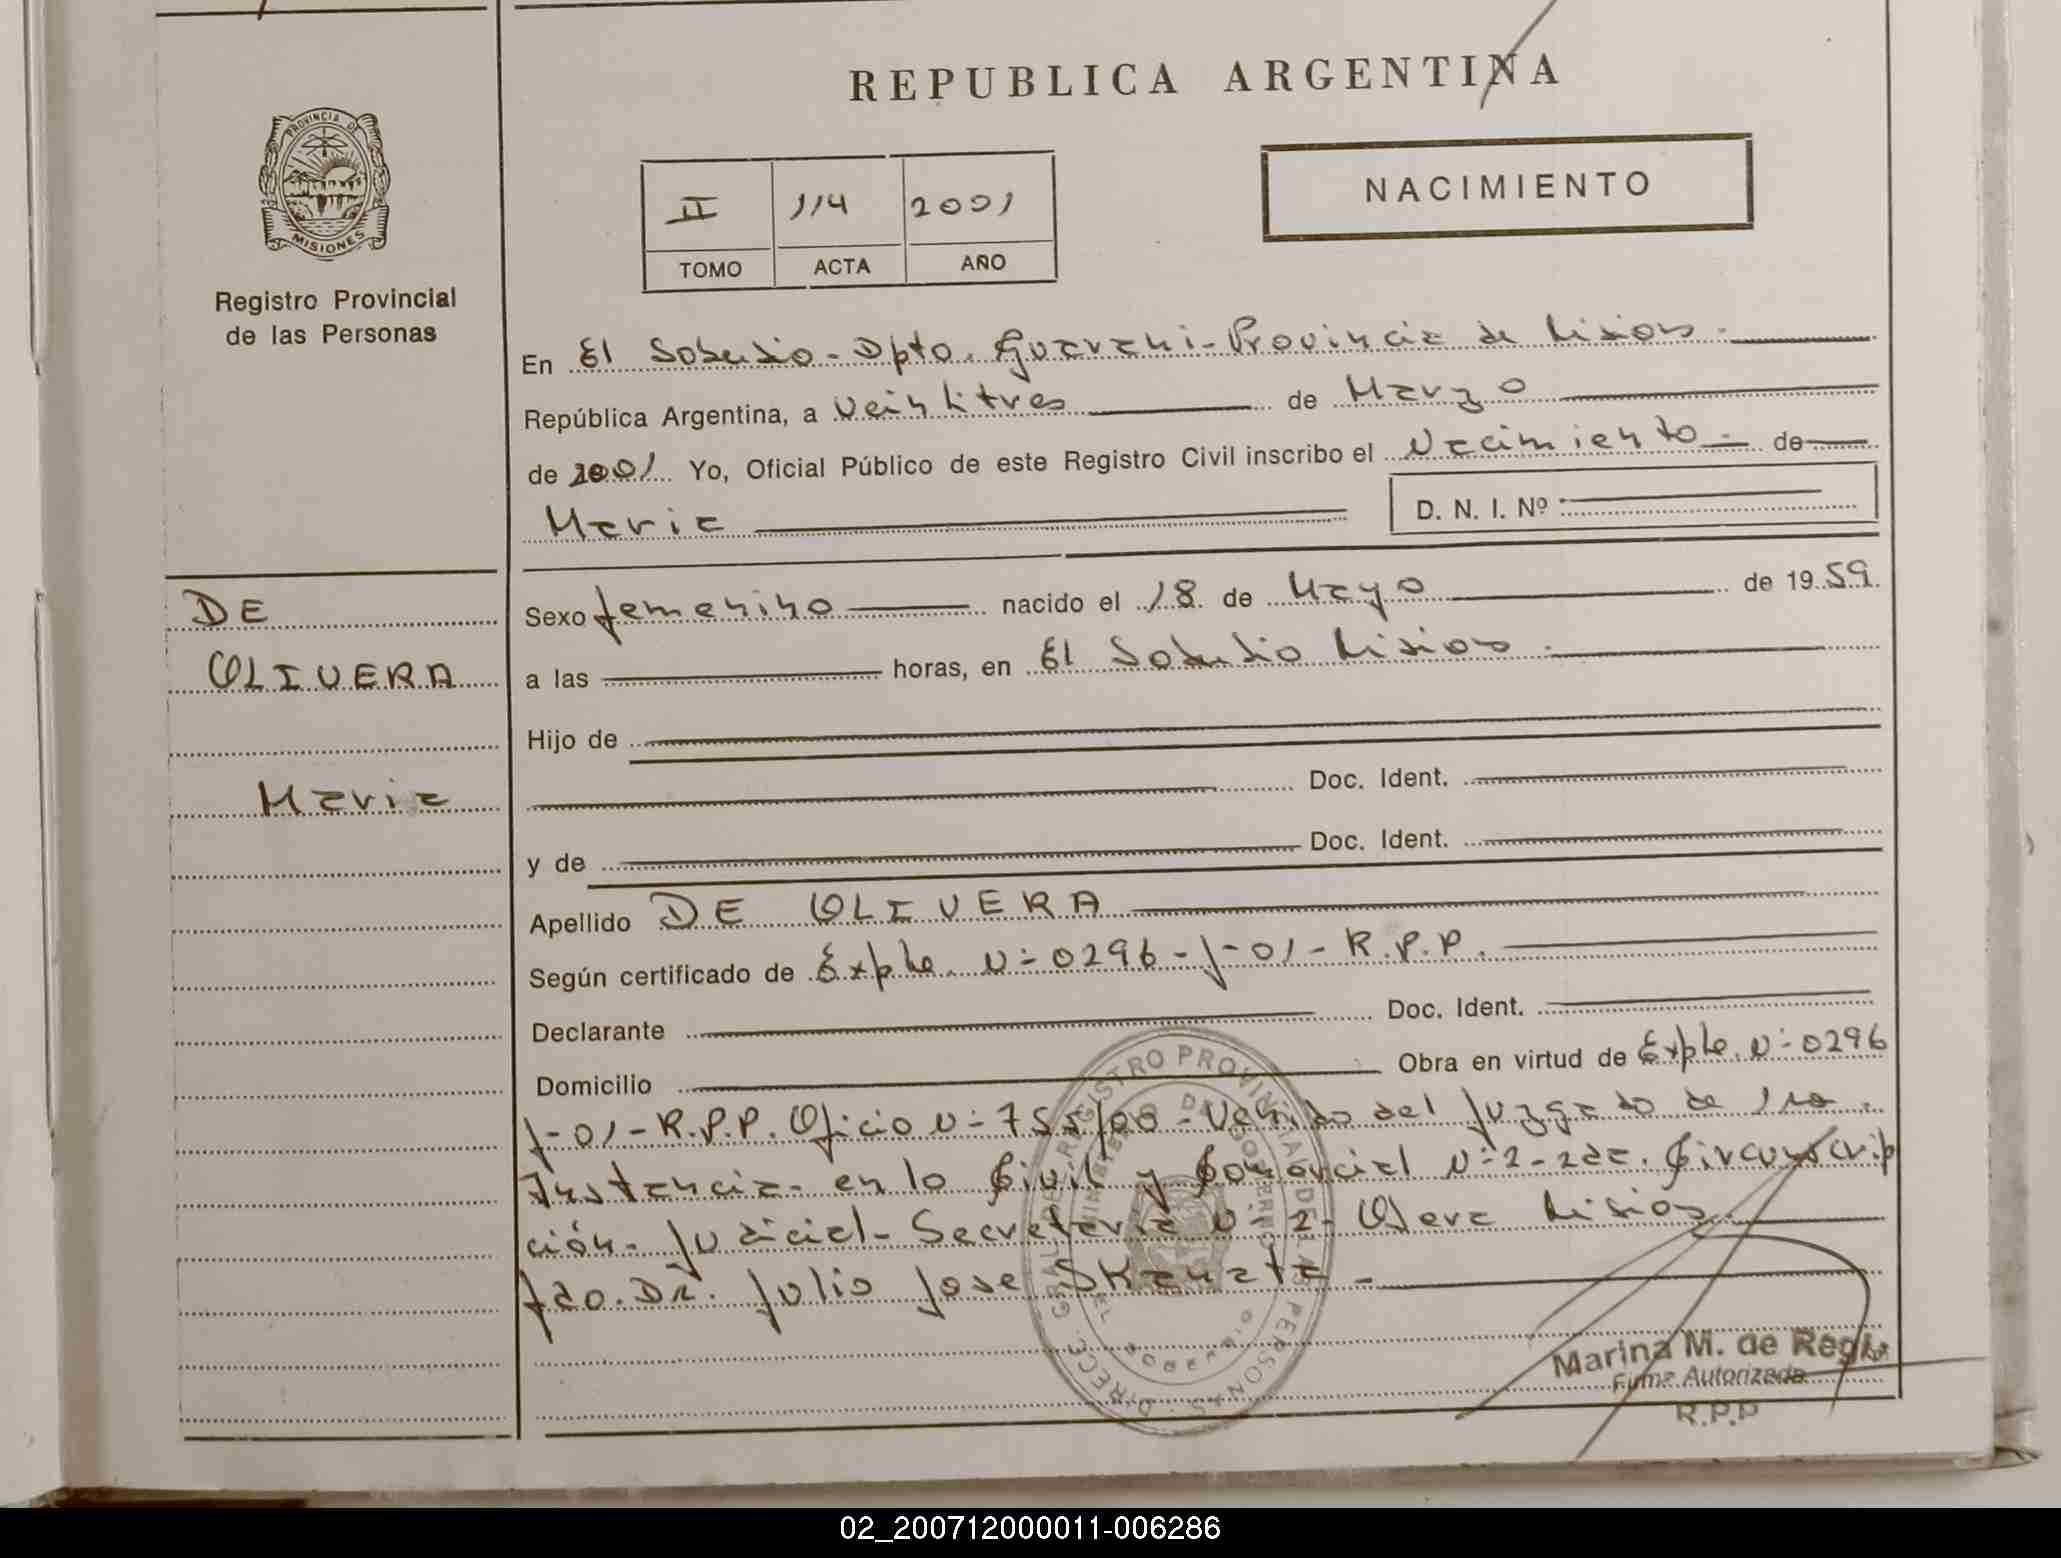 REPUBLICA ARGENTINA
PROVINCIA DE
MISIONES
Registro Provincial
de las Personas
II 114 2001
TOMO ACTA AÑO
NACIMIENTO
En El Soberbio - Dpto. Guarani - Provincia de Misiones.
República Argentina, a Veintitres de Marzo
de 2001 Yo, Oficial Público de este Registro Civil inscribo el Nacimiento de
Maria D. N. I. Nº
DE
OLIVERA
Maria
Sexo femenino nacido el 18 de Mayo de 1959.
a las horas, en El Soberbio Misiones.
Hijo de
Doc. Ident.
y de Doc. Ident.
Apellido DE OLIVERA
Según certificado de Expte. Nº 0296-J-01-R.P.P.
Declarante Doc. Ident.
Domicilio Obra en virtud de Expte. Nº 0296
J-01-R.P.P. Oficio Nº 755/00 - Venido del Juzgado de 1ra.
Instancia en lo Civil y Comercial Nº 2-2da. Circunscrip
ción. Judicial - Secretaria Nº 2 - Obera Misiones
fdo. Dr. Julio Jose
DIRECC. GRAL. DE REGISTRO PROVINCIAL DE LAS PERSONAS
MINISTERIO DE GOBIERNO
EL SOBERBIO
Marina M. de
Firma Autorizada
R.P.P
02_200712000011-006286